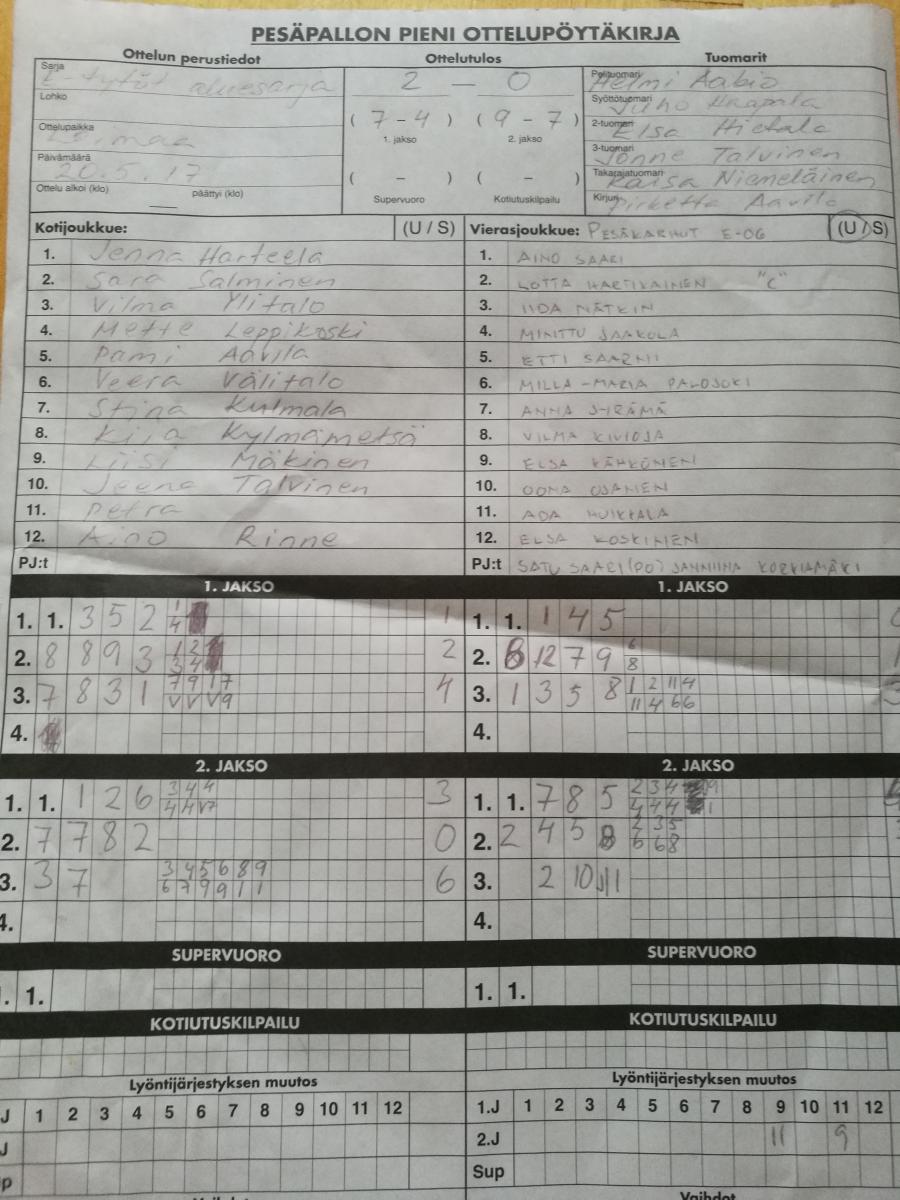 PESÄPALLON PIENI OTTELUPÖYTÄKIRJA
Ottelun perustiedot Ottelutulos Tuomarit
Sarja E-tytöt aluesarja
2 — 0
Pelituomari Helmi Aabio
Lohko
Syöttötuomari Juho Haapala
Ottelupaikka
( 7 - 4 ) ( 9 - 7 )
1. jakso 2. jakso
2-tuomari Elsa Hietala
3-tuomari Jonne Talvinen
Päivämäärä 20.5.17
( - ) ( - )
Takarajatuomari Kaisa Niemeläinen
Ottelu alkoi (klo) päättyi (klo)
Supervuoro Kotiutuskilpailu
Kirjuri Pirketta Aavila
Kotijoukkue: (U / S) Vierasjoukkue: PESÄKARHUT E-06 (U / S)
1. Jenna Harteela 1. AINO SAARI
2. Sara Salminen 2. LOTTA HARTIKAINEN "C"
3. Vilma Ylitalo 3. IIDA NÄTKIN
4. Mette Leppikoski 4. MINTTU JAAKOLA
5. Pami Aavila 5. ETTI SAARNII
6. Veera Välitalo 6. MILLA-MARIA PALOJOKI
7. Stina Kulmala 7. ANNA
8. Kiia Kylmämetsä 8. VILMA KIVIOJA
9. Liisi Mäkinen 9. ELSA KÄHKÖNEN
10. Jeena Talvinen 10. OONA OJANEN
11. Petra 11. ADA HUIKKALA
12. Aino Rinne 12. ELSA KOSKINEN
PJ:t PJ:t SATU SAARI (PO) JANNIINA KORKIAMÄKI
1. JAKSO 1. JAKSO
1. 1. 3 5 2 1 1. 1. 1 4 5
4
2. 8 8 9 3 1 2 2 2. 8 12 7 9 6
3 4 8
3. 7 8 3 1 7 9 1 7 4 3. 1 3 5 8 1 2 11 4 3
V V V 9 11 4 6 6
4. 4.
2. JAKSO 2. JAKSO
1. 1. 1 2 6 3 4 4 3 1. 1. 7 8 5 2 3 4 9
4 4 V7 4 4 4 1
2. 7 7 8 2 0 2. 2 4 5 8 2 3 5
6 6 8
3. 3 7 3 4 5 6 8 9 6 3. 2 10 11
6 7 9 9 1 1
4. 4.
SUPERVUORO SUPERVUORO
1. 1. 1.
KOTIUTUSKILPAILU KOTIUTUSKILPAILU
Lyöntijärjestyksen muutos Lyöntijärjestyksen muutos
J 1 2 3 4 5 6 7 8 9 10 11 12 1.J 1 2 3 4 5 6 7 8 9 10 11 12
J 2.J 11 9
p Sup
Vaihdot Vaihdot